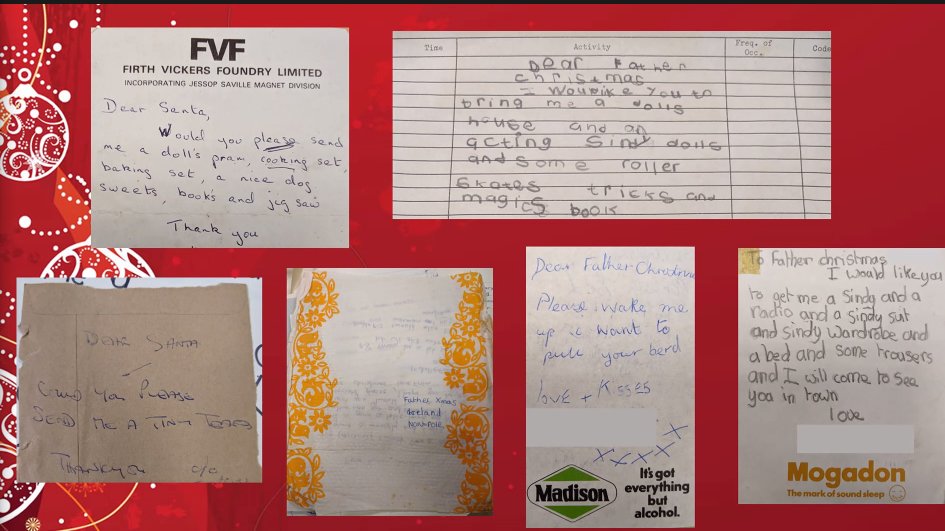 FVF
FIRTH VICKERS FOUNDRY LIMITED
INCORPORATING JESSOP SAVILLE MAGNET DIVISION
Dear Santa,
Would you please send
me a doll's pram, cooking set,
baking set, a nice dog,
sweets, book's and jig saw
Thank you
Time Activity Freq. of Occ. Code
Dear Father
christmas
I would like you to
bring me a dolls
house and an
acting Sindy dolls
and some roller
skates tricks and
magics book
DEAR SANTA
COULD YOU PLEASE
SEND ME A TINY TEARS
THANKYOU c/o
Father Xmas
Greland
Non-Pole.
Dear Father Christmas
Please wake me
up i want to
pull your berd
love + KISSES
XXXX X
Madison
It's got
everything
but
alcohol.
To Father christmas
I would like you
to get me a Sindy and a
radio and a sindy suit
and sindy wardrobe and
a bed and some trousers
and I will come to see
you in town
love
Mogadon
The mark of sound sleep